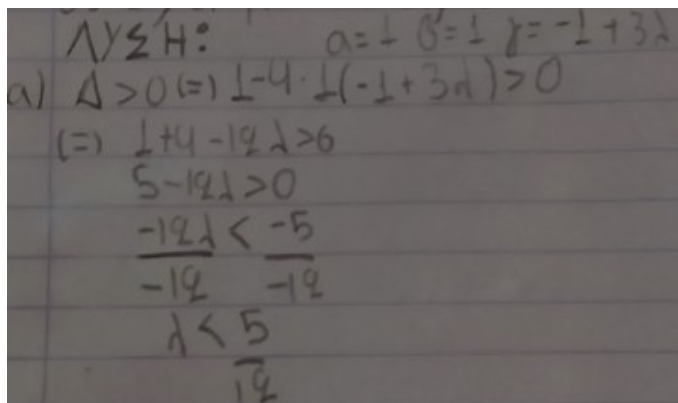 ΛΥΣΉ: α=1 β=1 γ=-1+3λ
α) Δ>0 (=) 1-4·1(-1+3λ)>0
(=) 1+4-12λ>0
5-12λ>0
-12λ < -5
-12 -12
λ < 5
12